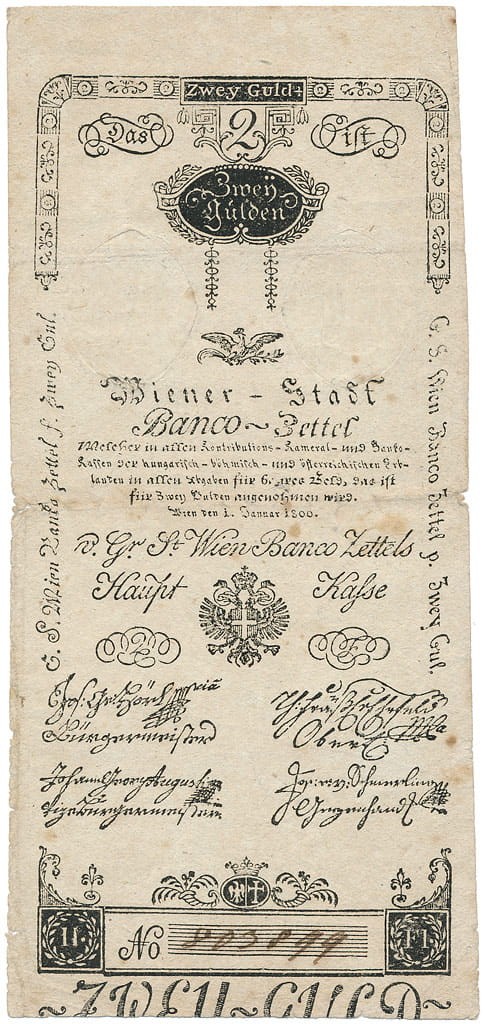 Zwey Guld
Das 2 ist
Zwey
Gulden
Wiener - Stadt
Banco - Zettel
Welcher in allen Kontributions- Kameral- und Banko-
Kassen der hungarisch- böhmisch- und österreichischen Erb-
landen in allen Abgaben für baares Geld, das ist
für Zwey Gulden angenohmen wird.
Wien den 1. Januar 1800.
v. Gr. St. Wien Banco Zettels
Haupt Kasse
2 2
Bürgermeister
Johann Georg Augusti
Vizebürgermeister
Gegenhand
II No 803899 II
ZWEY-GULD-
G. S. Wien Banko Zettel f. Zwey Gul.
G. S. Wien Banco Zettel p. Zwey Gul.